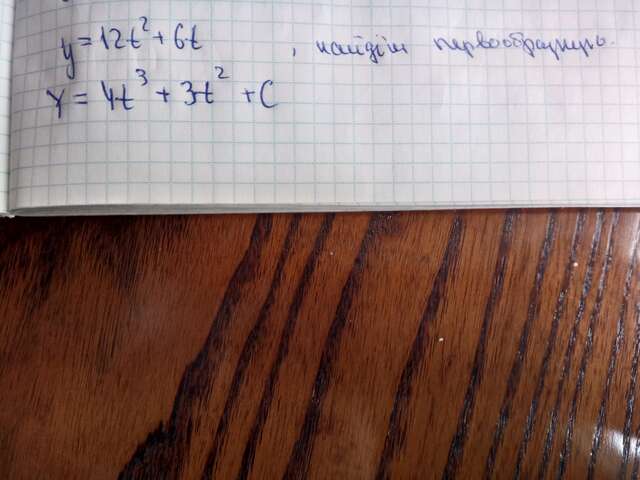 y = 12t² + 6t , найдём первообразную.
Y = 4t³ + 3t² + C